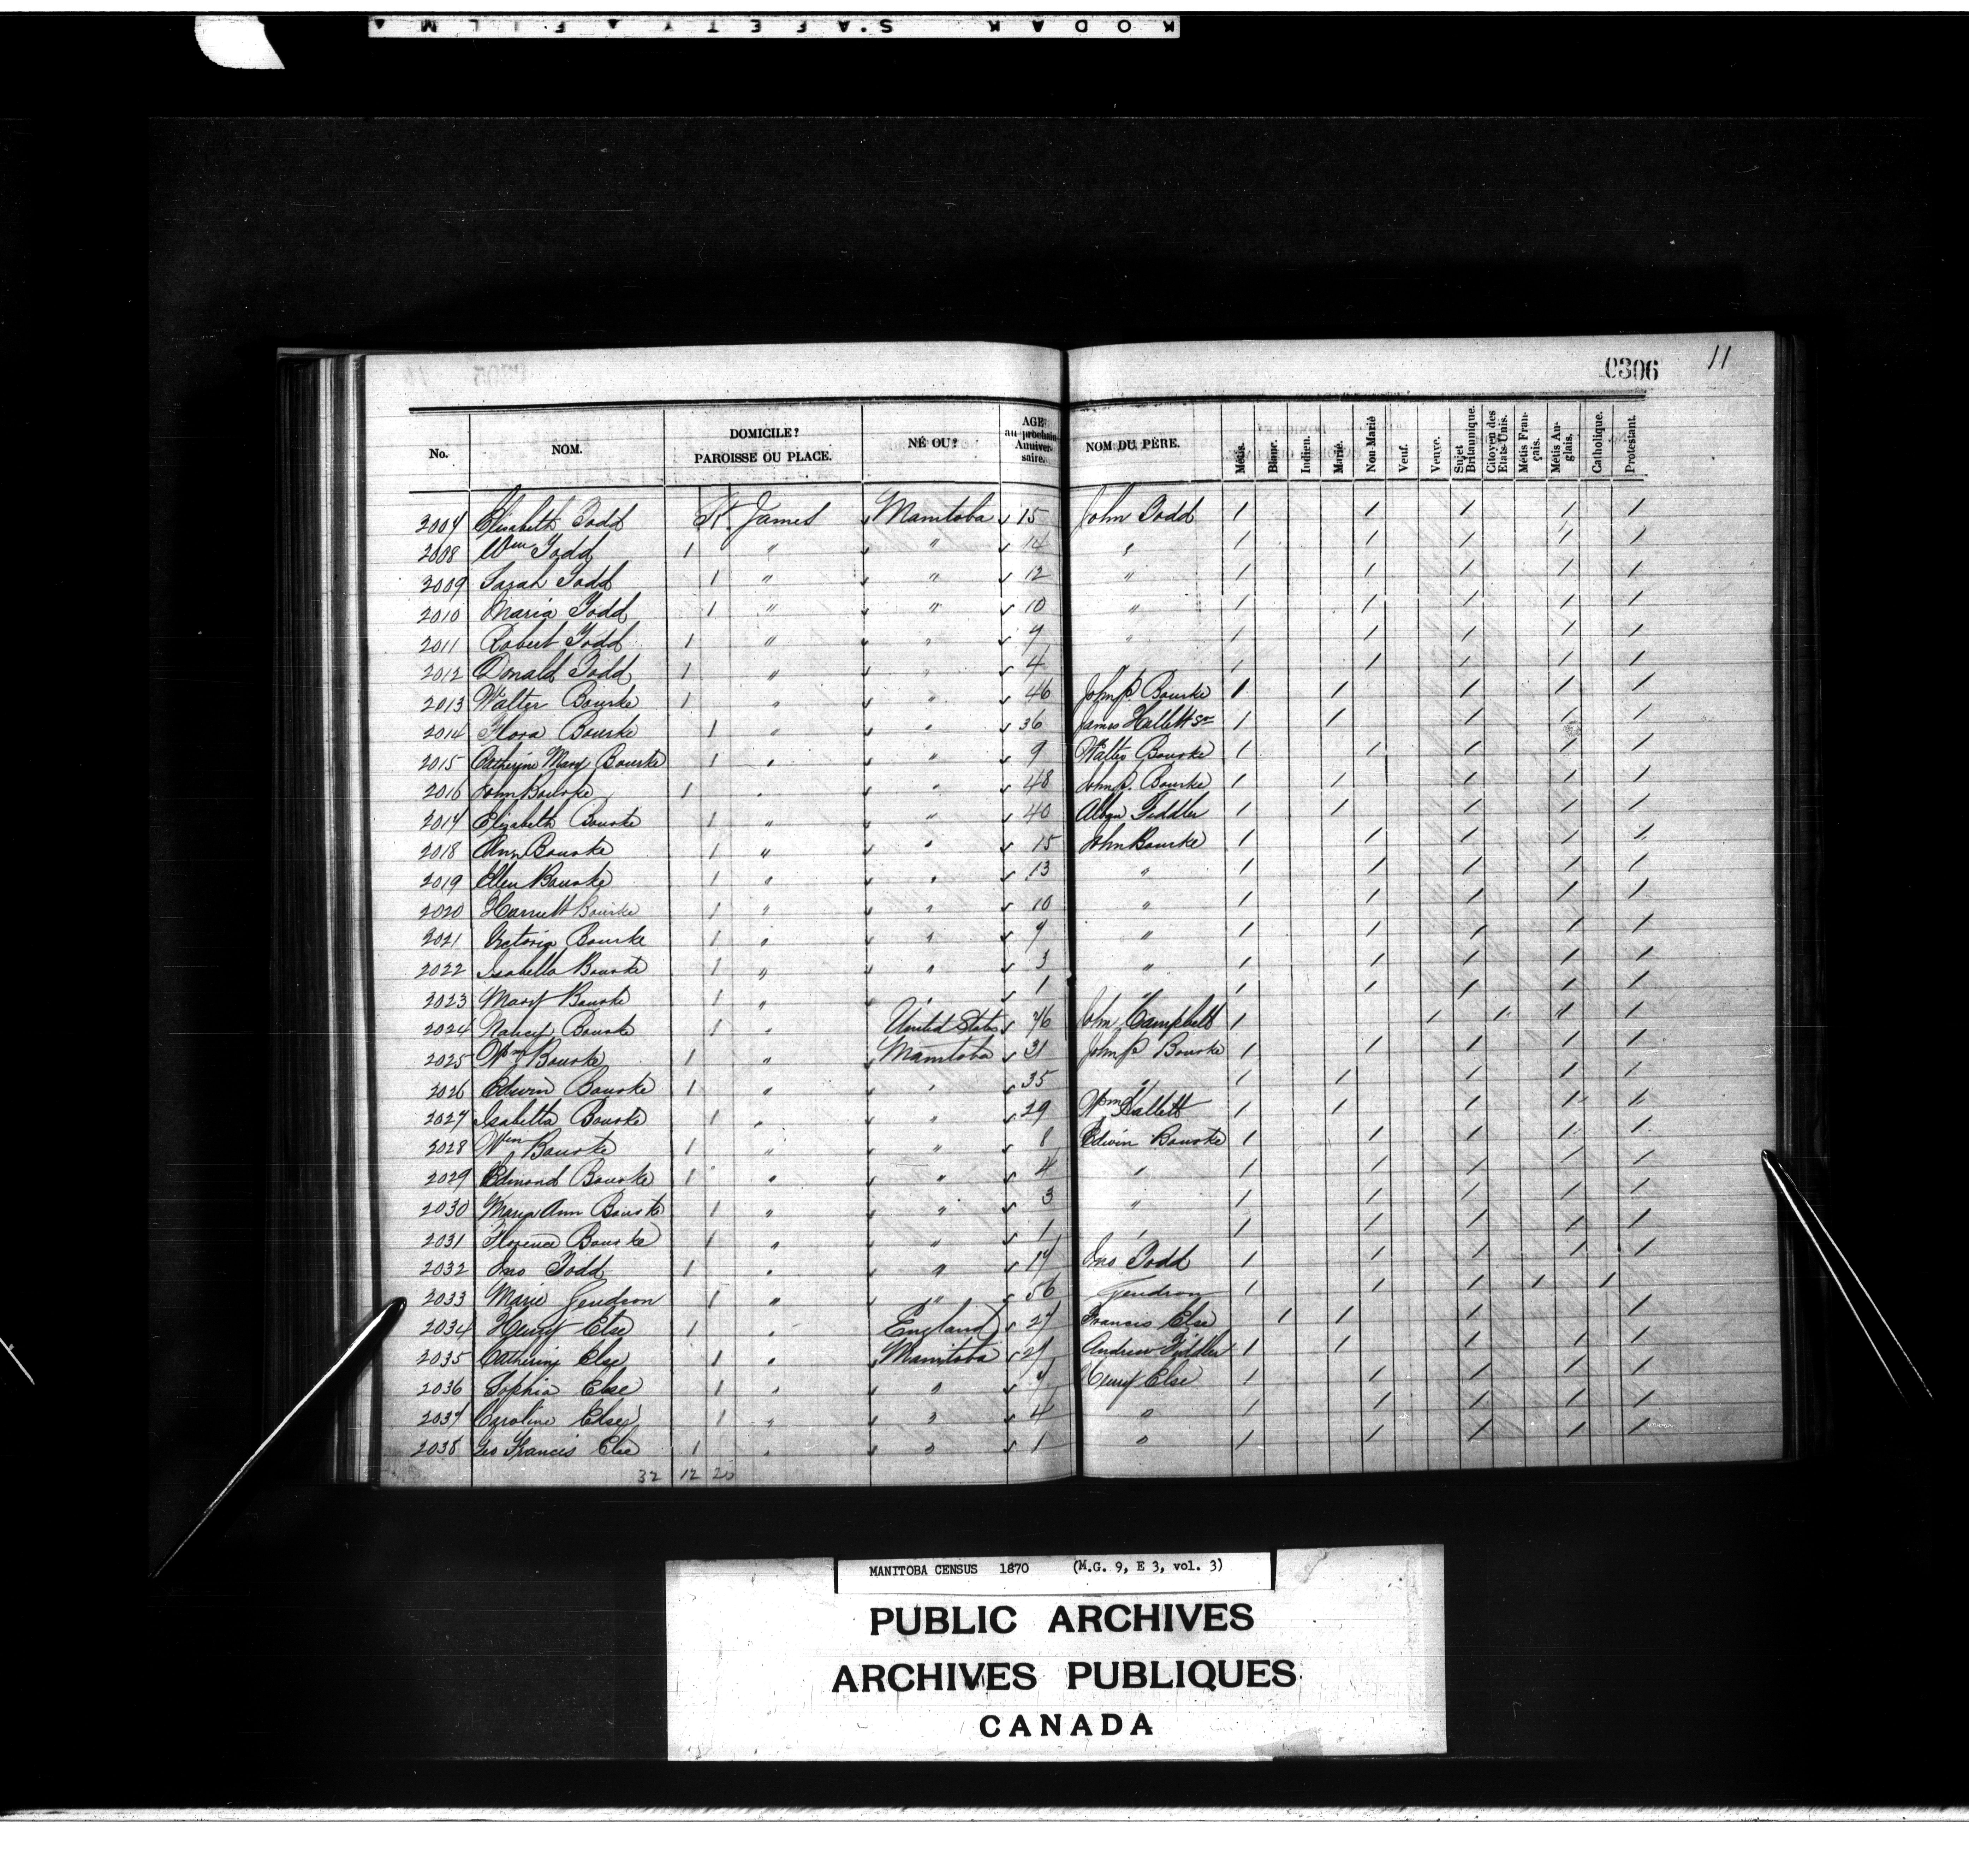 KODAK SAFETY FILM
0306 11
No. NOM. DOMICILE? PAROISSE OU PLACE. NÉ OU? AGE au prochain Anniversaire. NOM DU PÈRE. Métis. Blanc. Indien. Marié. Non-Marié Veuf. Veuve. Sujet Britannique. Citoyen des Etats-Unis. Métis Français. Métis Anglais. Catholique. Protestant.
2007 Elisabeth Todd St. James Manitoba 15 John Todd / / / / /
2008 Wm Todd 1 " " 14 " / / / / /
2009 Sarah Todd 1 " " 12 " / / / / /
2010 Maria Todd 1 " " 10 " / / / / /
2011 Robert Todd 1 " " 9 " / / / / /
2012 Donald Todd 1 " " 4 / / / / /
2013 Walter Bourke 1 " " 46 John P. Bourke / / / / /
2014 Flora Bourke 1 " " 36 James Hallett Sr / / / / /
2015 Catherine Mary Bourke 1 " " 9 Walter Bourke / / / / /
2016 John Bourke 1 " " 48 John P. Bourke / / / / /
2017 Elizabeth Bourke 1 " " 40 Fiddler / / / / /
2018 Ann Bourke 1 " " 15 John Bourke / / / / /
2019 Ellen Bourke 1 " " 13 " / / / / /
2020 Harriett Bourke 1 " " 10 " / / / / /
2021 Victoria Bourke 1 " " 7 " / / / / /
2022 Isabella Bourke 1 " " 3 " / / / / /
2023 Mary Bourke 1 " " 1 " / / / / /
2024 Nancy Bourke 1 " United States 76 John Campbell / / / / /
2025 Wm Bourke 1 " Manitoba 31 John P Bourke / / / / /
2026 Edwin Bourke 1 " " 35 " / / / / /
2027 Isabella Bourke 1 " " 29 Wm Hallett / / / / /
2028 Wm Bourke 1 " " 8 Edwin Bourke / / / / /
2029 Edmond Bourke 1 " " 4 " / / / / /
2030 Maria Ann Bourke 1 " " 3 " / / / / /
2031 Florence Bourke 1 " " 1 " / / / / /
2032 Jno Todd 1 " " 17 Jno Todd / / / / /
2033 Marie Gendron 1 " " 56 Gendron / / / / /
2034 Henry Else 1 " England 27 Francis Else / / / /
2035 Catherine Else 1 " Manitoba 21 Andrew Fiddler / / / / /
2036 Sophia Else 1 " " 7 Henry Else / / / / /
2037 Caroline Else 1 " " 4 " / / / / /
2038 Geo Francis Else 1 " " 1 " / / / / /
32 12 20
MANITOBA CENSUS 1870 (M.G. 9, E 3, vol. 3)
PUBLIC ARCHIVES
ARCHIVES PUBLIQUES
CANADA